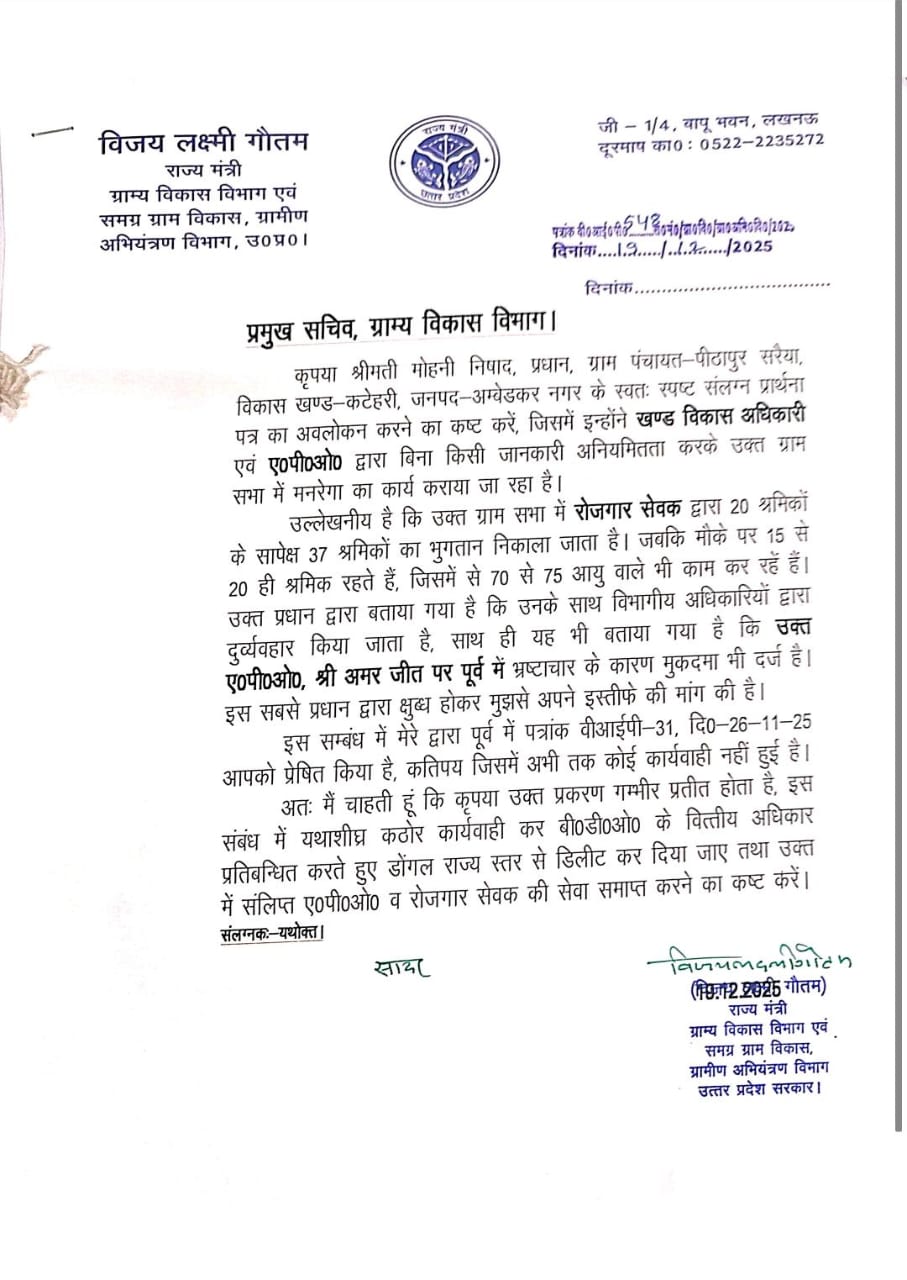 विजय लक्ष्मी गौतम
राज्य मंत्री
ग्राम्य विकास विभाग एवं
समग्र ग्राम विकास, ग्रामीण
अभियंत्रण विभाग, उ०प्र०।
राज्य मंत्री
उत्तर प्रदेश
जी – 1/4, बापू भवन, लखनऊ
दूरभाष का० : 0522–2235272
पत्रांक वी०आई०पी० 548
दिनांक....19...../..12...../2025
दिनांक....................................
प्रमुख सचिव, ग्राम्य विकास विभाग।
कृपया श्रीमती मोहनी निषाद, प्रधान, ग्राम पंचायत–पीठापुर सरैया,
विकास खण्ड–कटेहरी, जनपद–अम्बेडकर नगर के स्वतः स्पष्ट संलग्न प्रार्थना
पत्र का अवलोकन करने का कष्ट करें, जिसमें इन्होंने खण्ड विकास अधिकारी
एवं ए०पी०ओ० द्वारा बिना किसी जानकारी अनियमितता करके उक्त ग्राम
सभा में मनरेगा का कार्य कराया जा रहा है।
उल्लेखनीय है कि उक्त ग्राम सभा में रोजगार सेवक द्वारा 20 श्रमिकों
के सापेक्ष 37 श्रमिकों का भुगतान निकाला जाता है। जबकि मौके पर 15 से
20 ही श्रमिक रहते हैं, जिसमें से 70 से 75 आयु वाले भी काम कर रहें हैं।
उक्त प्रधान द्वारा बताया गया है कि उनके साथ विभागीय अधिकारियों द्वारा
दुर्व्यवहार किया जाता है, साथ ही यह भी बताया गया है कि उक्त
ए०पी०ओ०, श्री अमर जीत पर पूर्व में भ्रष्टाचार के कारण मुकदमा भी दर्ज है।
इस सबसे प्रधान द्वारा क्षुब्ध होकर मुझसे अपने इस्तीफे की मांग की है।
इस सम्बंध में मेरे द्वारा पूर्व में पत्रांक वीआईपी–31, दि०–26–11–25
आपको प्रेषित किया है, कतिपय जिसमें अभी तक कोई कार्यवाही नहीं हुई है।
अतः मैं चाहती हूं कि कृपया उक्त प्रकरण गम्भीर प्रतीत होता है, इस
संबंध में यथाशीघ्र कठोर कार्यवाही कर बी०डी०ओ० के वित्तीय अधिकार
प्रतिबन्धित करते हुए डोंगल राज्य स्तर से डिलीट कर दिया जाए तथा उक्त
में संलिप्त ए०पी०ओ० व रोजगार सेवक की सेवा समाप्त करने का कष्ट करें।
संलग्नकः–यथोक्त।
विजयलक्ष्मीगौतम
(विजय लक्ष्मी गौतम)
19.12.2025
राज्य मंत्री
ग्राम्य विकास विभाग एवं
समग्र ग्राम विकास,
ग्रामीण अभियंत्रण विभाग
उत्तर प्रदेश सरकार।